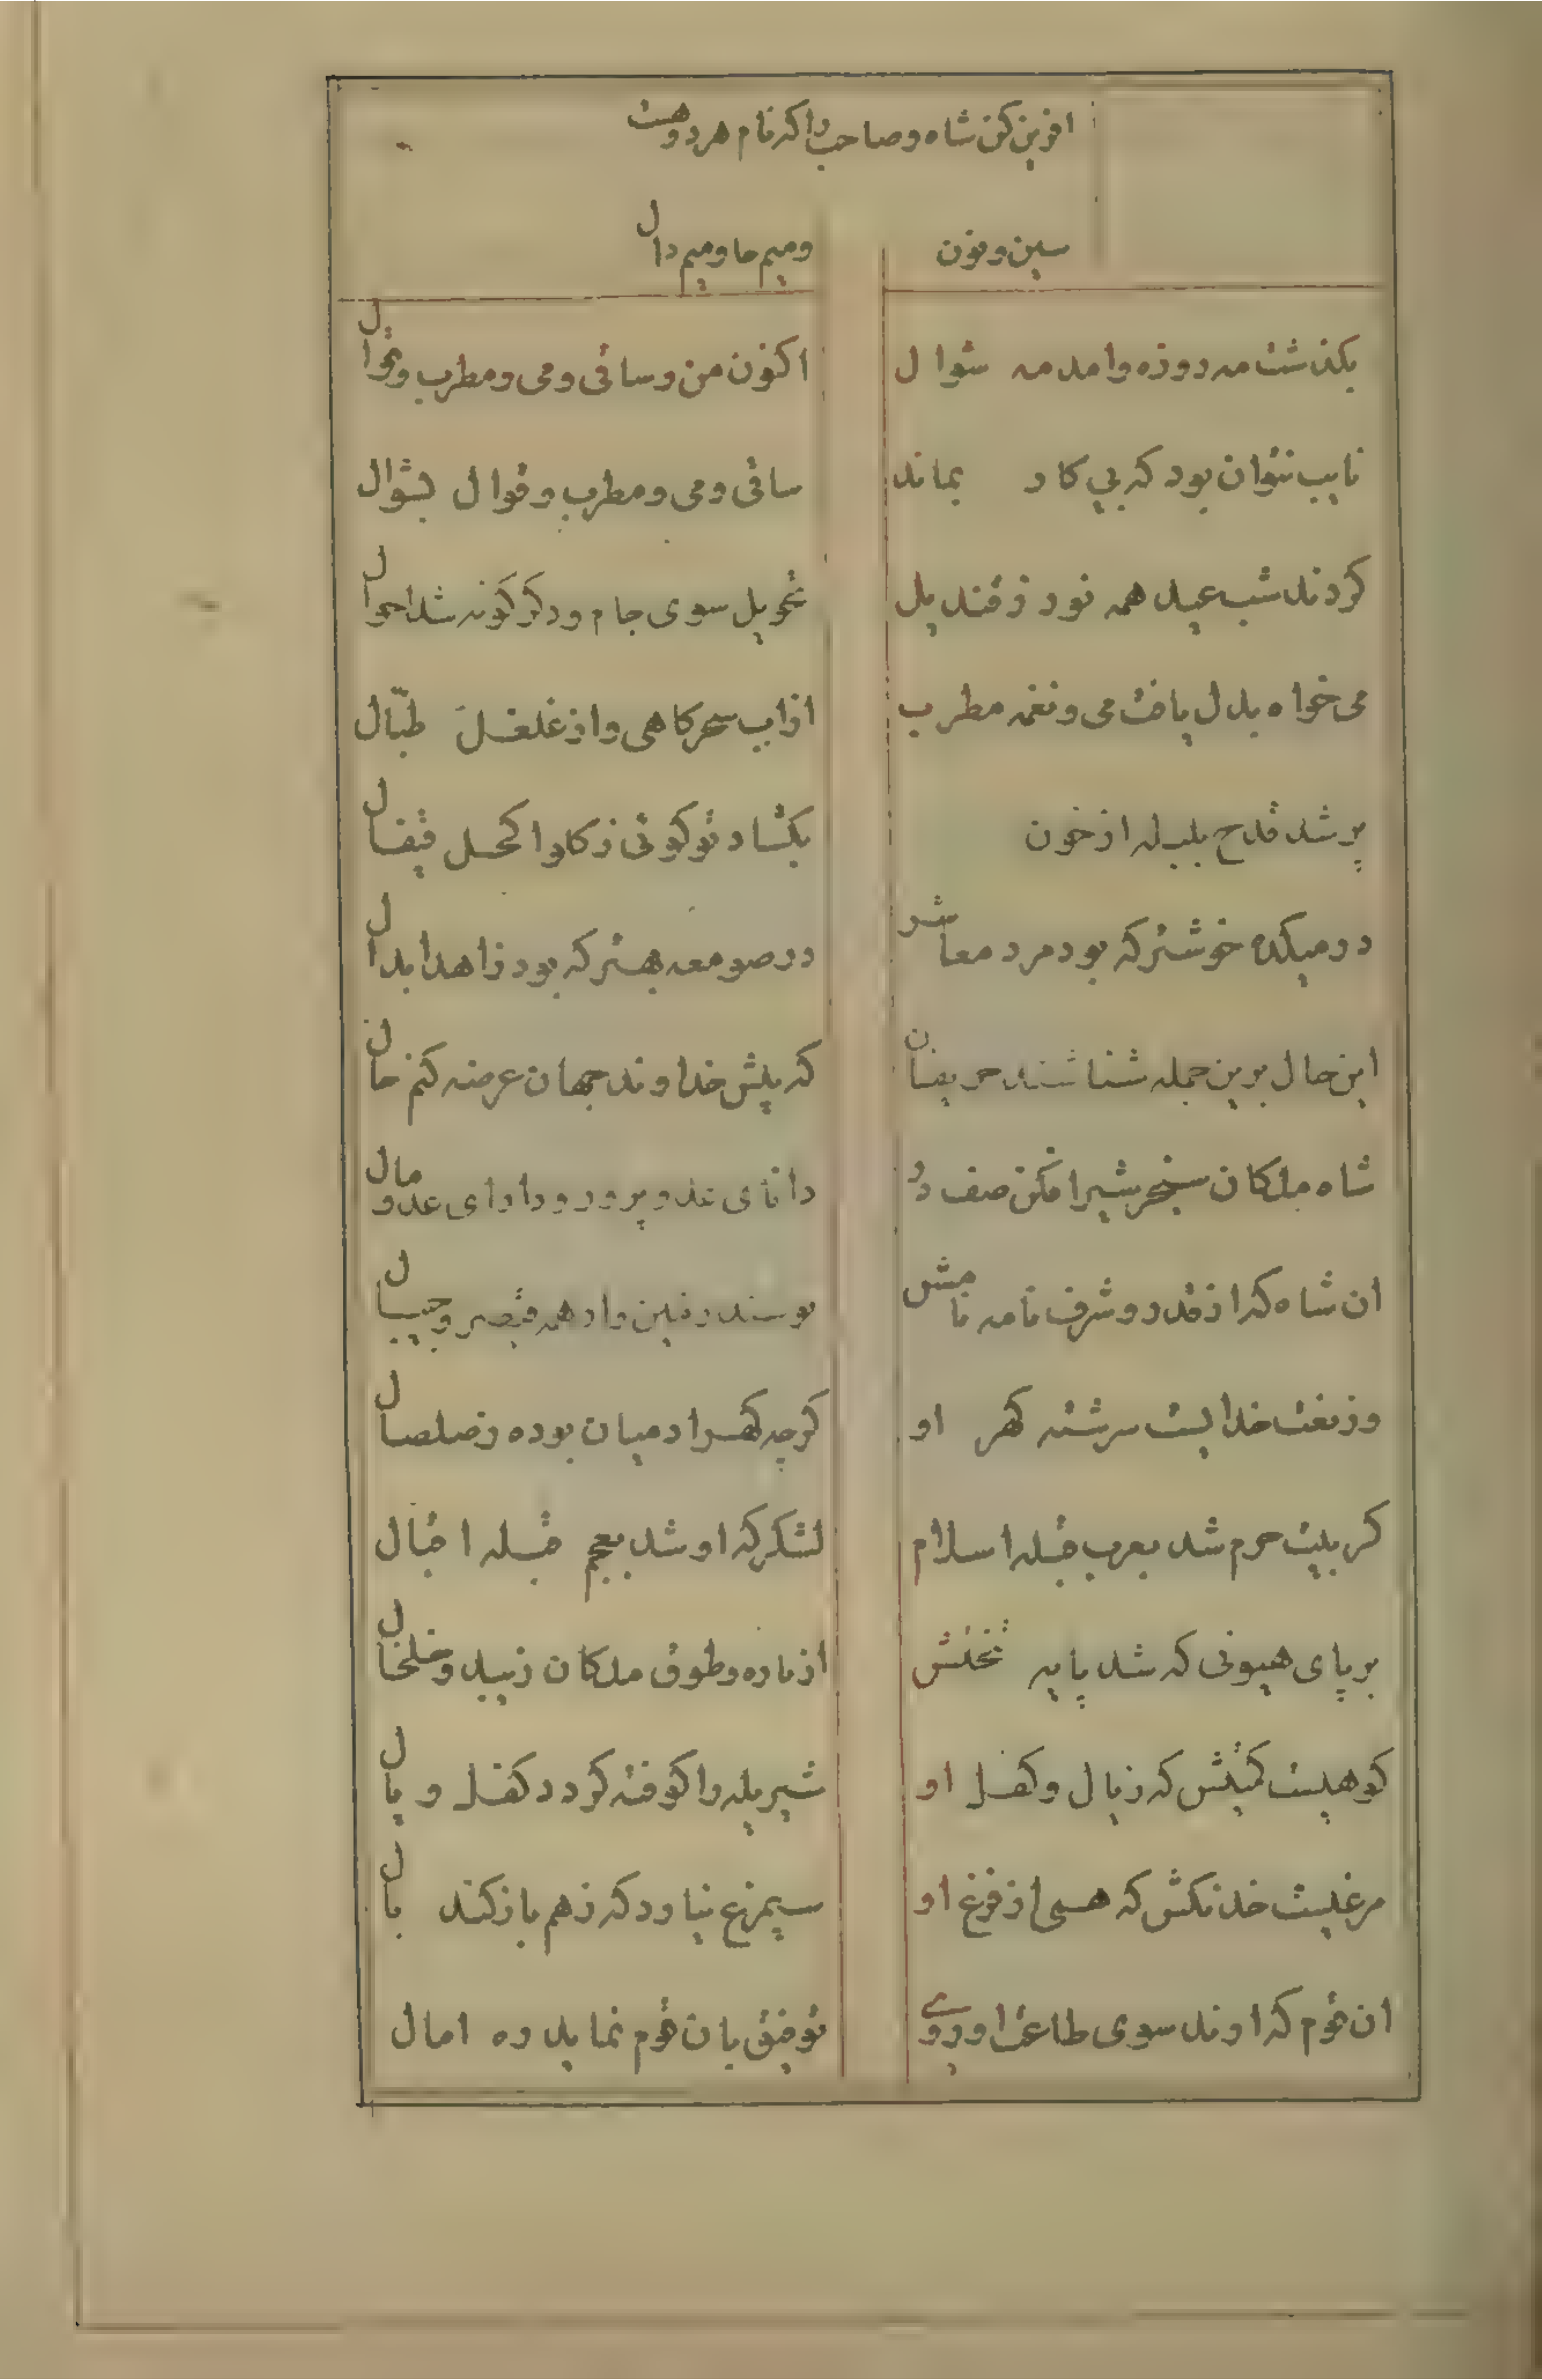 افرین کن شاه و صاحب را که نام هر دو هست
سین و نون
و میم حا و میم دال
بکذشت مه روزه وامد مه شوال
اکنون من و ساقی و می و مطرب و قوال
نایب نتوان بود که بی کار بماند
ساقی و می و مطرب و قوال بشوال
کردند شب عید همه نور ز قندیل
تحویل سوی جام و دکر کونه شد احوال
می خواه بدل یافت می و نغمه مطرب
از اب سحرکاهی و از غلغل طبّال
پر شد قدح بلبله از خون
بکشاد تو کوئی ز کلو اکحل قیفال
در میکده خوشتر که بود مرد معاشر
در صومعه بهتر که بود زاهد ابدال
این حال برین جمله شناسند حریفان
که پیش خداوند جهان عرضه کنم حال
شاه ملکان سنجر شیر افکن صف در
دانای عدو پرور و دارای عدو مال
ان شاه که از قدر و شرف نامه نامش
بوسند زمین وار همه قیصر و جیپال
وز نعت خدایست سرشته کهر او
کرچه کهر ادمیان بوده ز صلصال
کر بیت حرم شد بعرب قبله اسلام
لشکر که او شد بعجم قبله اقبال
بر پای هیونی که شد پایه تختش
از یاره و طوق ملکان زیبد و خلخال
کوهیست کمیتش که ز یال و کفل او
شیر یله را کوفته کردد کفل و یال
مرغیست خدنکش که همی از فزع او
سیمرغ نیارد که ز هم باز کند بال
ان قوم که ارند سوی طاعت او روی
توفیق بان قوم نماید ره امال